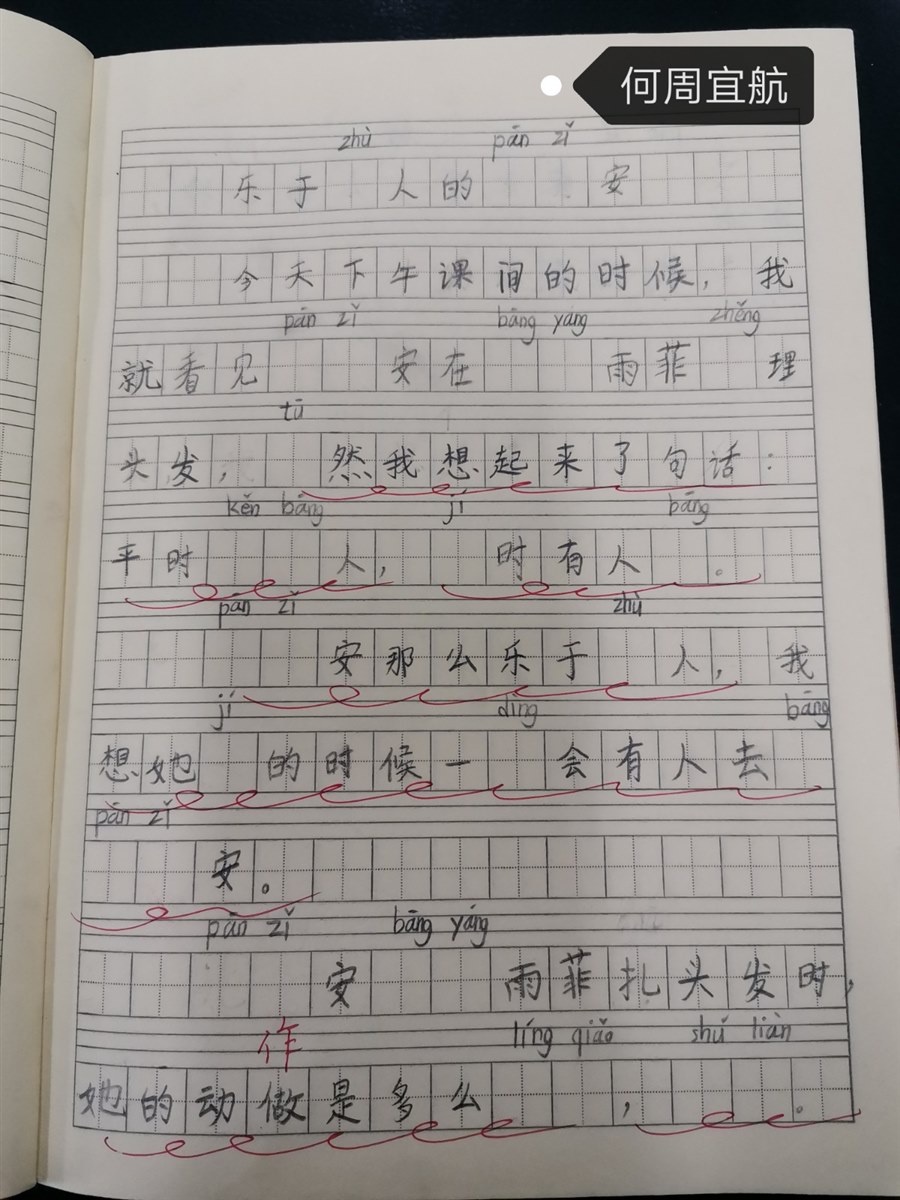 何周宜航
zhù pān zǐ
乐于 人的 安
今天下午课间的时候，我
pān zǐ bāng yáng zhěng
就看见 安在 雨菲 理
tū
头发， 然我想起来了句话：
kěn bāng jí bāng
平时 人， 时有人 。
pān zǐ zhù
安那么乐于 人，我
jí dìng bāng
想她 的时候一 会有人去
pān zǐ
安。
pān zǐ bāng yáng
安 雨菲扎头发时，
作 líng qiǎo shú liàn
她的动做是多么 ， 。